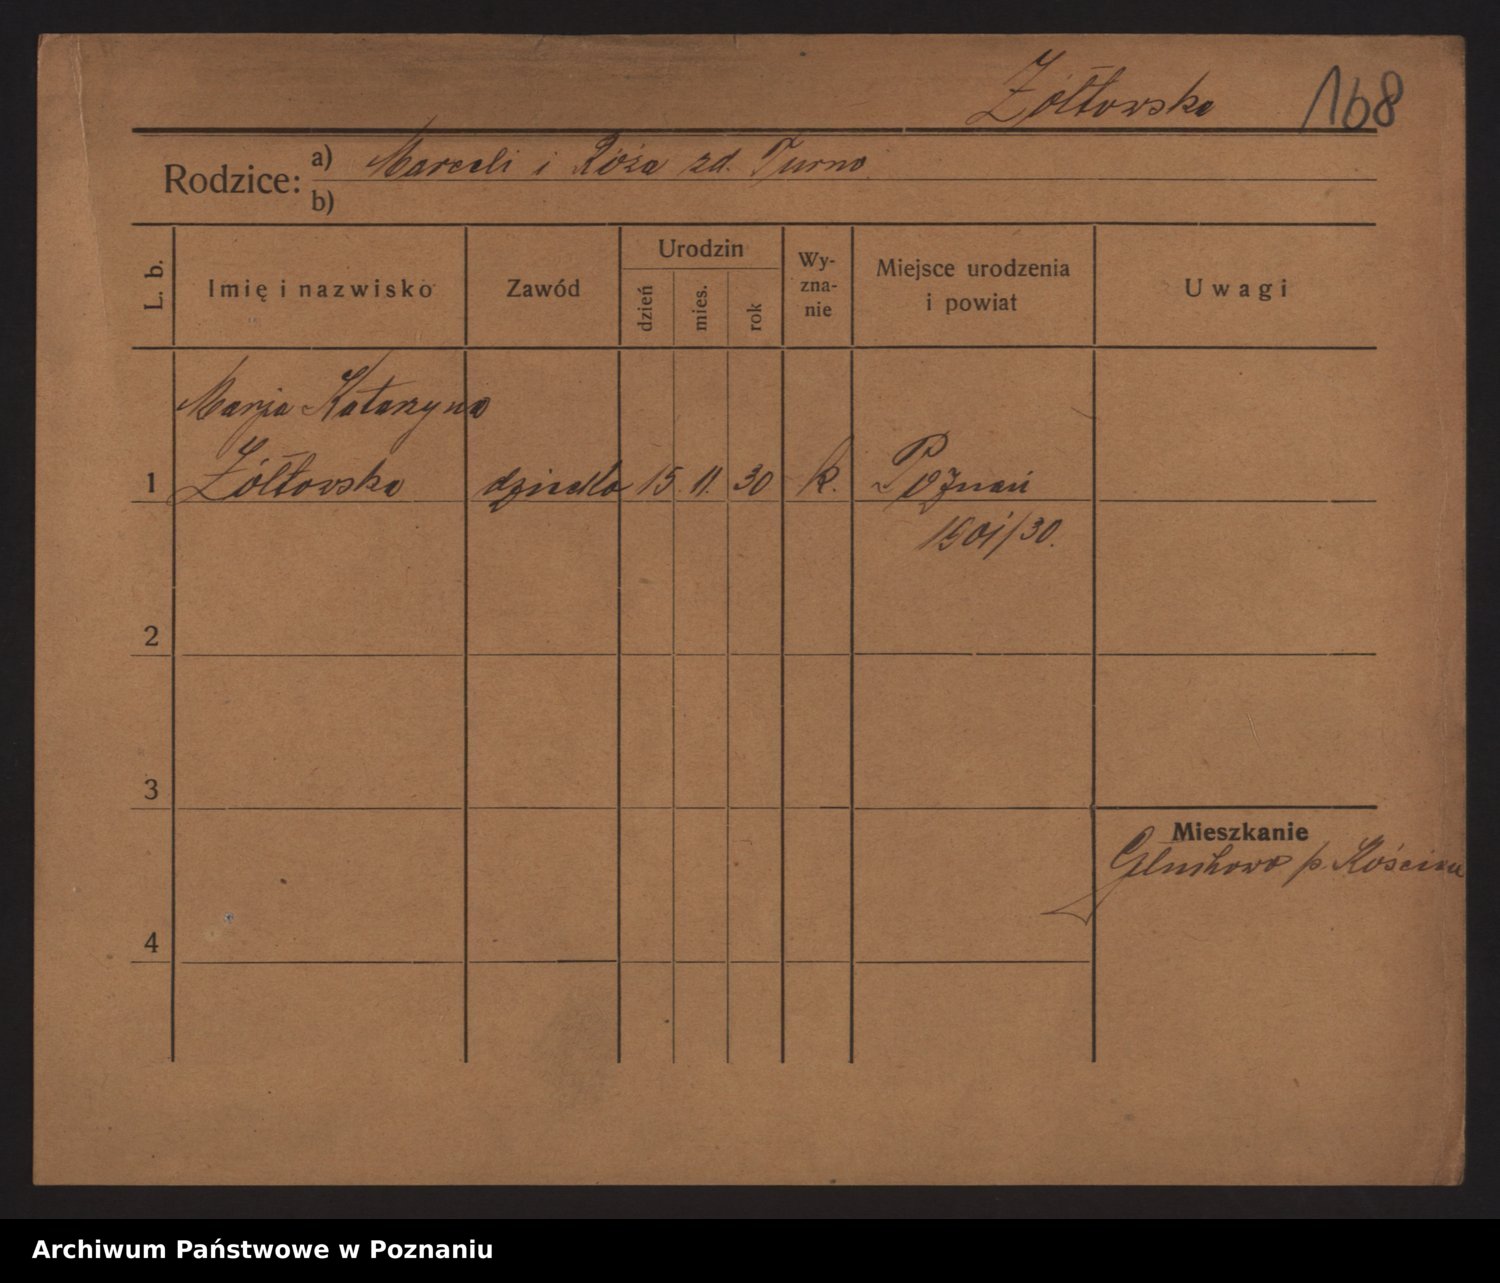 Żółtowska 168
Rodzice: a) Marceli i Róża zd. Turno
b)
L. b. Imię i nazwisko Zawód Urodzin dzień mies. rok Wy-zna-nie Miejsce urodzenia i powiat Uwagi
Marja Katarzyna
1 Żółtowska dziecko 15 11. 30 k. Poznań
1501/30.
2
3
Mieszkanie
Głuchowo p. Kościan
4
Archiwum Państwowe w Poznaniu